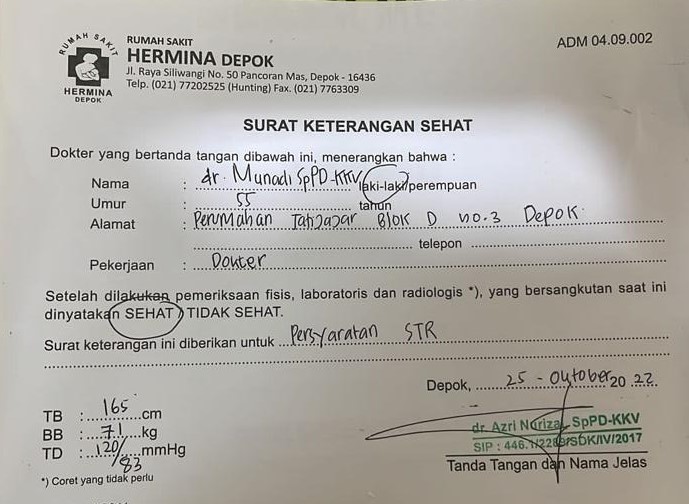 RUMAH SAKIT
HERMINA
DEPOK
RUMAH SAKIT
HERMINA DEPOK
Jl. Raya Siliwangi No. 50 Pancoran Mas, Depok - 16436
Telp. (021) 77202525 (Hunting) Fax. (021) 7763309
ADM 04.09.002
SURAT KETERANGAN SEHAT
Dokter yang bertanda tangan dibawah ini, menerangkan bahwa :
Nama : dr. Munadi SpPD-KKV laki-laki/perempuan
Umur : 55 tahun
Alamat : Perumahan Jatijajar Blok D no.3 Depok
telepon
Pekerjaan : Dokter
Setelah dilakukan pemeriksaan fisis, laboratoris dan radiologis *), yang bersangkutan saat ini
dinyatakan SEHAT / TIDAK SEHAT.
Surat keterangan ini diberikan untuk Persyaratan STR
Depok, 25 - Oktober 20 22
TB : 165 cm
BB : 71 kg
TD : 120/83 mmHg
*) Coret yang tidak perlu
dr. Azri Nurizal, SpPD-KKV
SIP : 446.1/
/SDK/IV/2017
Tanda Tangan dan Nama Jelas